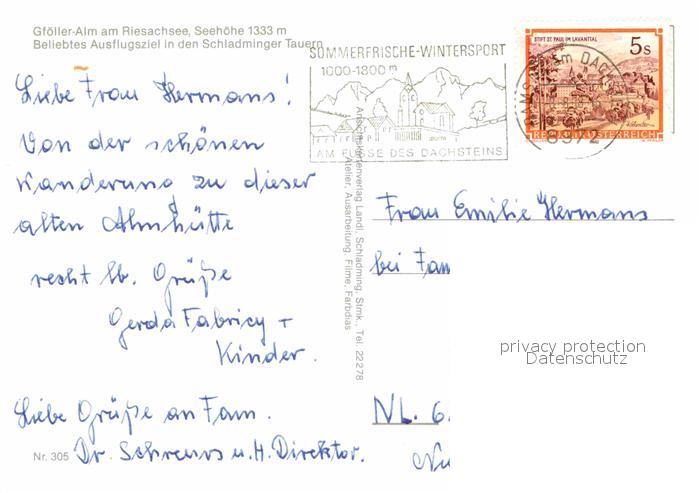 Gföller-Alm am Riesachsee, Seehöhe 1333 m
Beliebtes Ausflugsziel in den Schladminger Tauern
Liebe Frau Hermans!
Von der schönen
Wanderung zu dieser
alten Almhütte
recht lb. Grüße
Gerda Fabricy +
Kinder.
Liebe Grüße an Fam.
Dr. Schreurs u. H. Direktor.
Nr. 305
SOMMERFRISCHE-WINTERSPORT
1000-1800 m
AM FUSSE DES DACHSTEINS
STIFT ST. PAUL IM LAVANTTAL
5 S
REPUBLIK ÖSTERREICH
RAMSAU am DACHSTEIN
8972
Ansichtskartenverlag Landl, Schladming, Stmk., Tel. 22278
Atelier, Ausarbeitung, Filme, Farbdias
Frau Emilie Hermans
bei Fam
NL. 6.
privacy protection
Datenschutz